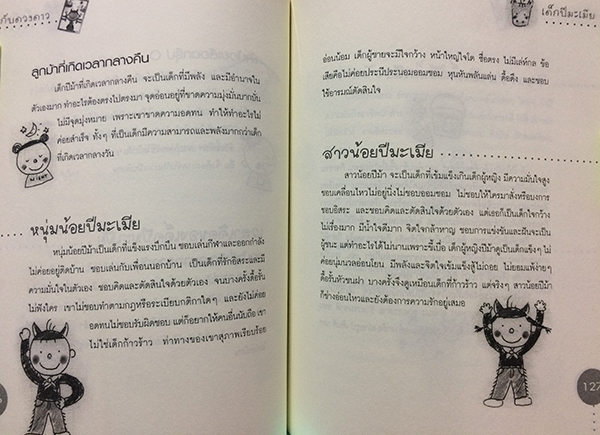 กับดวงดาว
ลูกม้าที่เกิดเวลากลางคืน
เด็กปีม้าที่เกิดเวลากลางคืน จะเป็นเด็กที่มีพลัง และมีอำนาจใน
ตัวเองมาก ทำอะไรต้องตรงไปตรงมา จุดอ่อนอยู่ที่ขาดความมุ่งมั่นบากบั่น
ไม่มีจุดมุ่งหมาย เพราะเขาขาดความอดทน ทำให้ทำอะไรไม่
ค่อยสำเร็จ ทั้งๆ ที่เป็นเด็กมีความสามารถและพลังมากกว่าเด็ก
ที่เกิดเวลากลางวัน
NIGHT
หนุ่มน้อยปีมะเมีย
หนุ่มน้อยปีม้าเป็นเด็กที่แข็งแรงบึกบึน ชอบเล่นกีฬาและออกกำลัง
ไม่ค่อยอยู่ติดบ้าน ชอบเล่นกับเพื่อนนอกบ้าน เป็นเด็กที่รักอิสระและมี
ความมั่นใจในตัวเอง ชอบคิดและตัดสินใจด้วยตัวเอง จนบางครั้งดื้อรั้น
ไม่ฟังใคร เขาไม่ชอบทำตามกฎหรือระเบียบกติกาใดๆ และยังไม่ค่อย
อดทนไม่ชอบรับผิดชอบ แต่ก็อยากให้คนอื่นนับถือ เขา
ไม่ใช่เด็กก้าวร้าว ท่าทางของเขาสุภาพเรียบร้อย
เด็กปีมะเมีย
อ่อนน้อม เด็กผู้ชายจะมีใจกว้าง หน้าใหญ่ใจโต ซื่อตรง ไม่มีเล่ห์กล ข้อ
เสียคือไม่ค่อยประนีประนอมยอมชอม หุนหันพลันแล่น ดื้อดึง และชอบ
ใช้อารมณ์ตัดสินใจ
สาวน้อยปีมะเมีย
สาวน้อยปีม้า จะเป็นเด็กที่เข้มแข็งเกินเด็กผู้หญิง มีความมั่นใจสูง
ชอบเคลื่อนไหวไม่อยู่นิ่งไม่ชอบออมชอม ไม่ชอบให้ใครมาสั่งหรือบงการ
ชอบอิสระ และชอบคิดและตัดสินใจด้วยตัวเอง แต่เธอก็เป็นเด็กใจกว้าง
ไม่เรื่องมาก มีน้ำใจดีมาก จิตใจกล้าหาญ ชอบการแข่งขันและฝันจะเป็น
ผู้ชนะ แต่ทำอะไรได้ไม่นานเพราะขี้เบื่อ เด็กผู้หญิงปีม้าดูเป็นเด็กแข็งๆ ไม่
ค่อยนุ่มนวลอ่อนโยน มีพลังและจิตใจเข้มแข็งสู้ไม่ถอย ไม่ยอมแพ้ง่ายๆ
ดื้อรั้นหัวชนฝา บางครั้งจึงดูเหมือนเด็กที่ก้าวร้าว แต่จริงๆ สาวน้อยปีม้า
ก็ช่างอ่อนไหวและยังต้องการความรักอยู่เสมอ
127